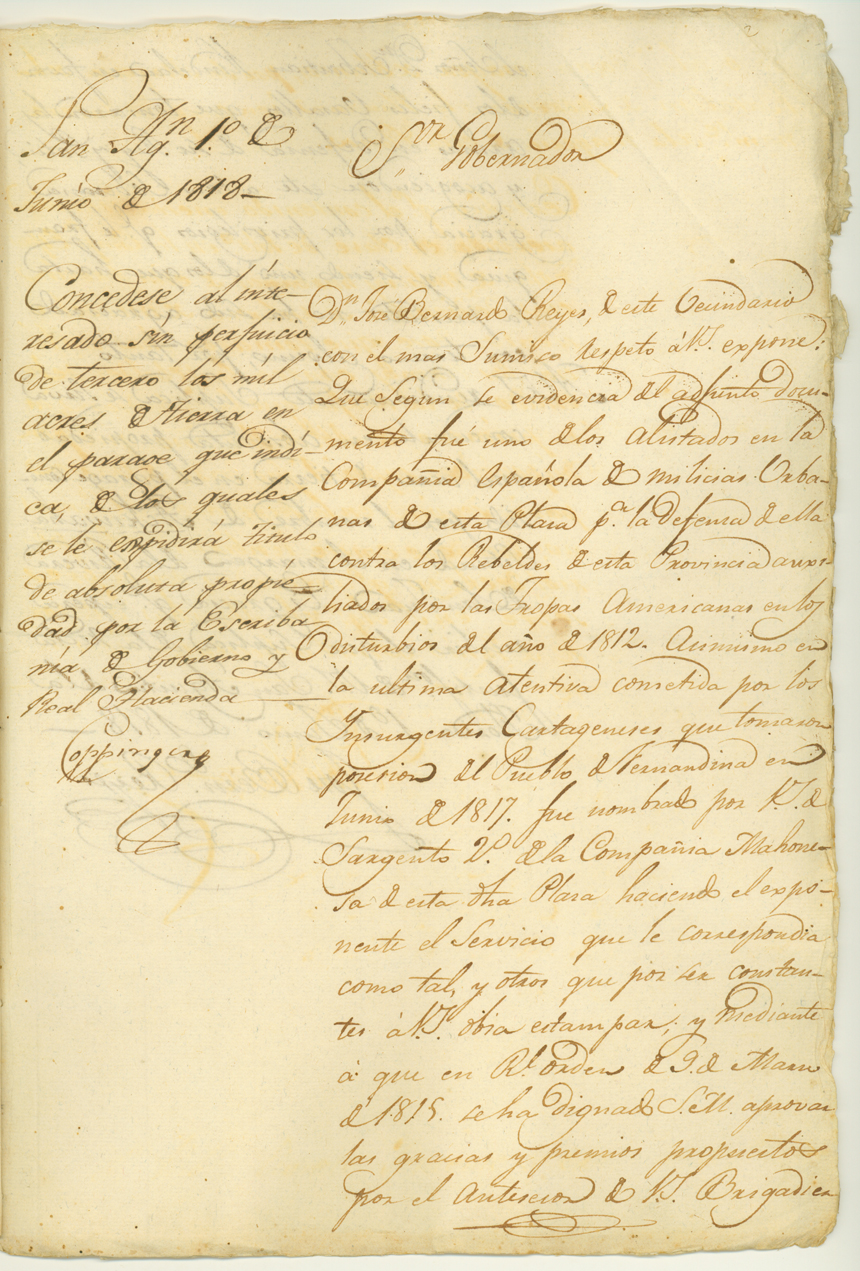 San Ag.n 1.º de
Junio de 1818—
Concedese al inte-
resado sin perjuicio
de tercero los mil
acres de tierra en
el parage que indi-
ca, de los quales
se le expidirá titulo
de absoluta propie-
dad por la Escriba
nia de Gobierno y
Real Hacienda
Coppinger
S.or Gobernador
D.n José Bernardo Reyes, de este Vecindario
con el mas Sumiso respeto á V.S. expone:
Que Segun se evidencia del adjunto docu-
mento fué uno de los alistados en la
Compañia Española de milicias Urba-
nas de esta Plaza p.a la defensa de ella
contra los Rebeldes de esta Provincia auxi-
liados por las Tropas Americanas en los
disturbios del año de 1812. Asimismo en
la ultima atentiva cometida por los
Ynsurgentes Cartageneses que tomaron
posesion del Pueblo de Fernandina en
Junio de 1817. fue nombrado por V.S. de
Sargento 2.º de la Compañia Mahone-
sa de esta dha Plaza haciendo el expo-
nente el Servicio que le correspondia
como tal, y otros que por ser constan-
tes á V.S. obia estampar; y mediante
á que en R.l orden de 9. de Marzo
de 1815. se ha dignado S.M. aprovar
las gracias y premios propuestos
por el Antesesor de V.S. Brigadier